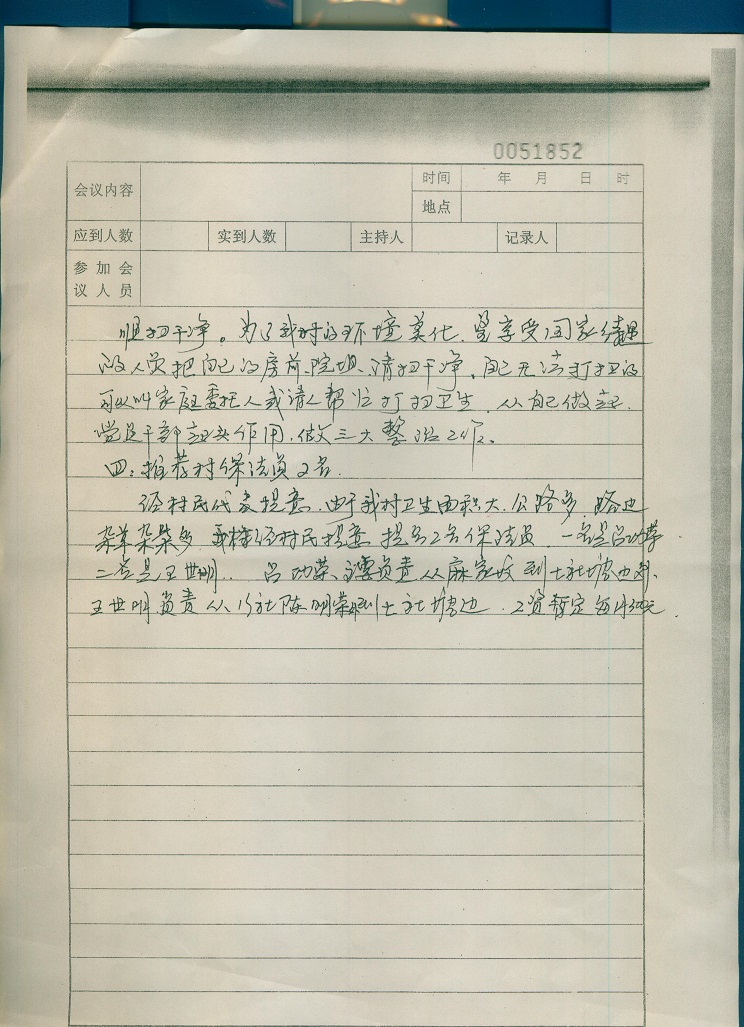 0051852
会议内容 时间 年 月 日 时
地点
应到人数 实到人数 主持人 记录人
参加会
议人员
坝扫干净。为了我村的环境美化,是享受国家待遇
的人员把自己的房前、院坝、清扫干净,自己无法打扫的
可以叫家庭委托人或请人帮忙打扫卫生,从自己做起,
党员干部起头作用,做三大整治工作。
四:推荐村保洁员2名.
经村民代表提意,由于我村卫生面积大,公路多,路边
杂草杂柴多 经村民提意 提名2名保洁员,一名是吕功荣
二名是王世明.. 吕功荣、主要负责从麻家 到七社塘边
王世明负责从 社陈明荣 到七社塘边.工资暂定每月300元.